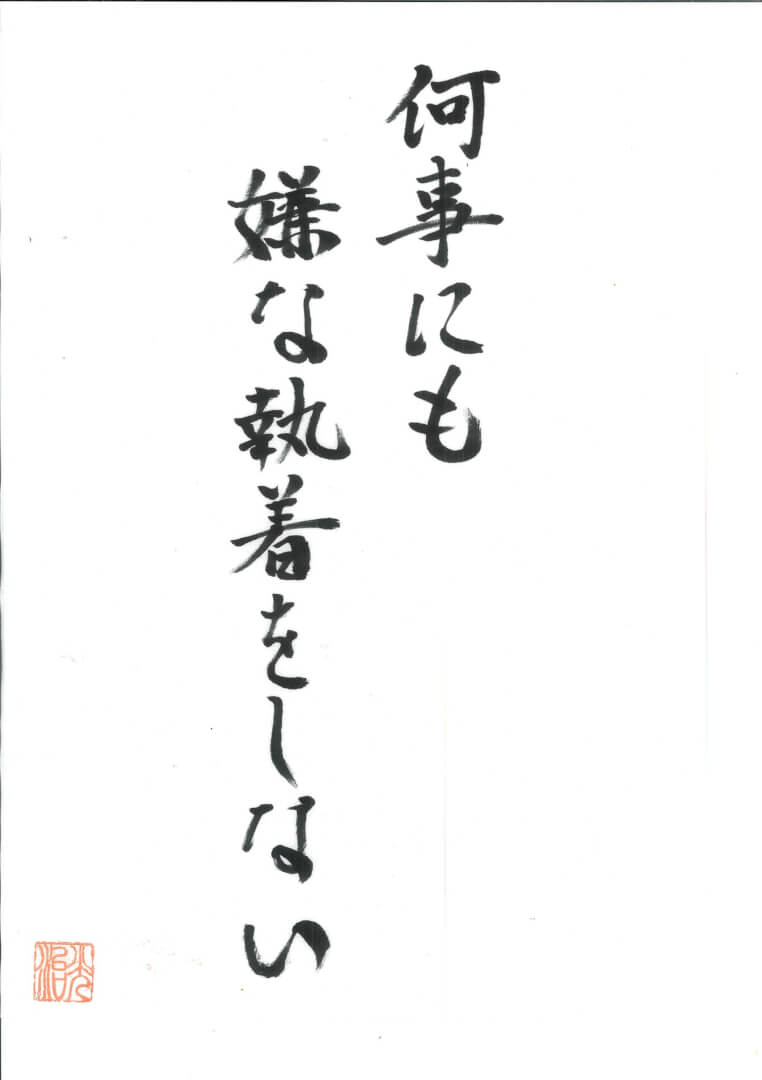 何事にも
嫌な執着をしない